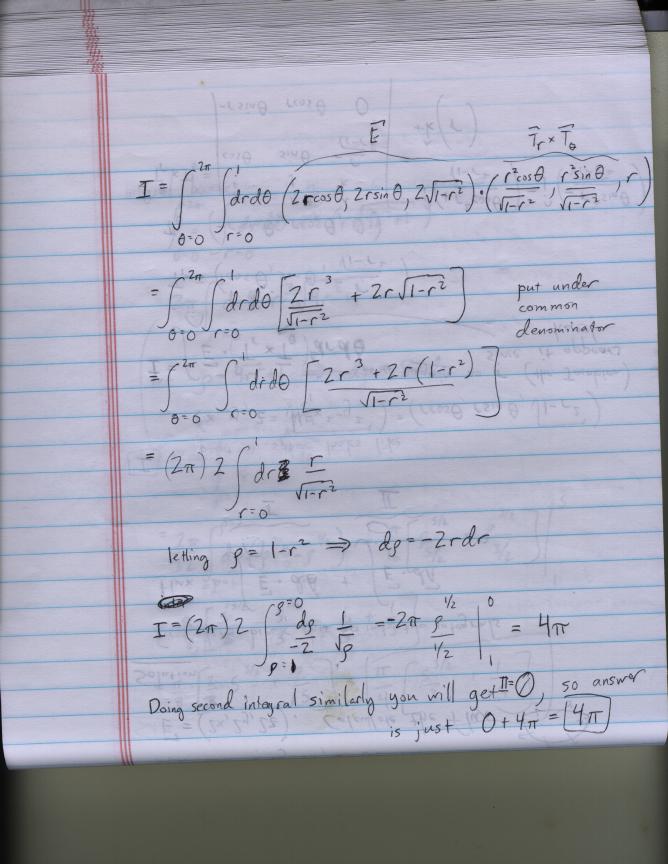 E⃗ T⃗_r × T⃗_θ
I = ∫_{θ=0}^{2π} ∫_{r=0}^{1} drdθ (2rcosθ, 2rsinθ, 2√(1-r²)) · (r²cosθ/√(1-r²), r²sinθ/√(1-r²), r)
= ∫_{θ=0}^{2π} ∫_{r=0}^{1} drdθ [2r³/√(1-r²) + 2r√(1-r²)] put under
common
denominator
= ∫_{θ=0}^{2π} ∫_{r=0}^{1} drdθ [(2r³ + 2r(1-r²))/√(1-r²)]
= (2π) 2 ∫_{r=0}^{1} dr r/√(1-r²)
letting ρ = 1-r² ⇒ dρ = -2rdr
I = (2π) 2 ∫_{ρ=1}^{ρ=0} dρ/-2 1/√ρ = -2π ρ^{1/2}/(1/2) |_1^0 = 4π
Doing second integral similarly you will get II=0, so answer
is just 0 + 4π = 4π